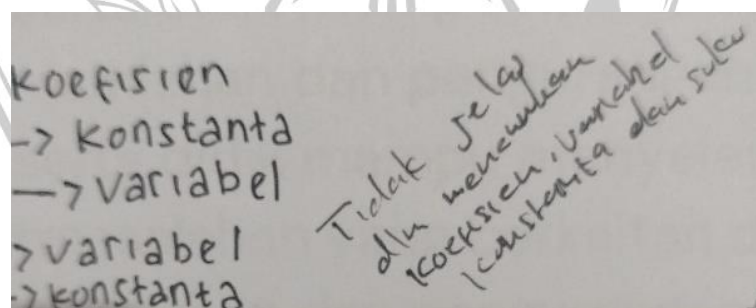 koefisien
-> konstanta
-> variabel
> variabel
-> konstanta
Tidak jelas
dlm menentukan
koefisien, variabel
konstanta dan suku